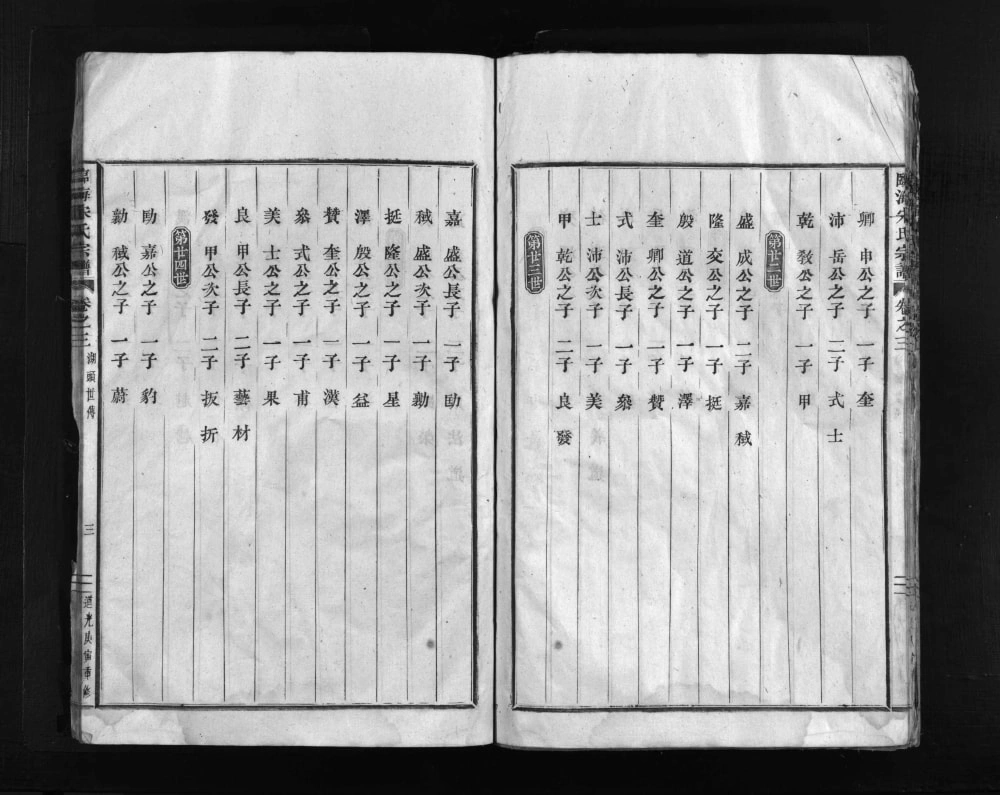 臨海朱氏宗譜 卷之三
卿 申公之子 一子 奎
沛 岳公之子 二子 式 士
乾 敎公之子 一子 甲
第廿二世
盛 成公之子 二子 嘉 穊
隆 交公之子 一子 挺
殷 道公之子 一子 澤
奎 卿公之子 一子 贊
式 沛公長子 一子 叅
士 沛公次子 一子 美
甲 乾公之子 二子 良 發
第廿三世
嘉 盛公長子 一子 勛
盛公次子 一子 勤
挺 隆公之子 一子 星
澤 殷公之子 一子 益
贊 奎公之子 一子 漢
叅 式公之子 一子 甫
美 士公之子 一子 果
良 甲公長子 二子 藝 材
發 甲公次子 二子 扳 折
第廿四世
嘉公之子 一子 豹
公之子 一子 蔚
臨海朱氏宗譜 卷之三 湖頭世傳 三 道光庚寅重修